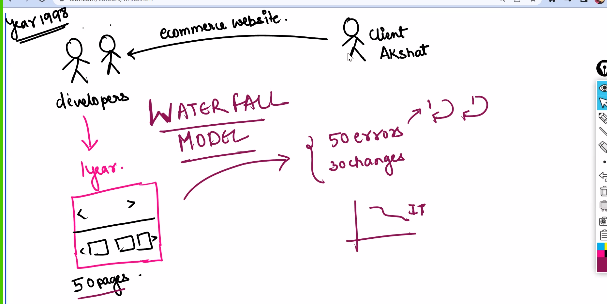 Year 1998
ecommerce website.
Client
Akshat
developers
WATERFALL
MODEL
50 errors
30 changes
1 year.
IT
50 pages.